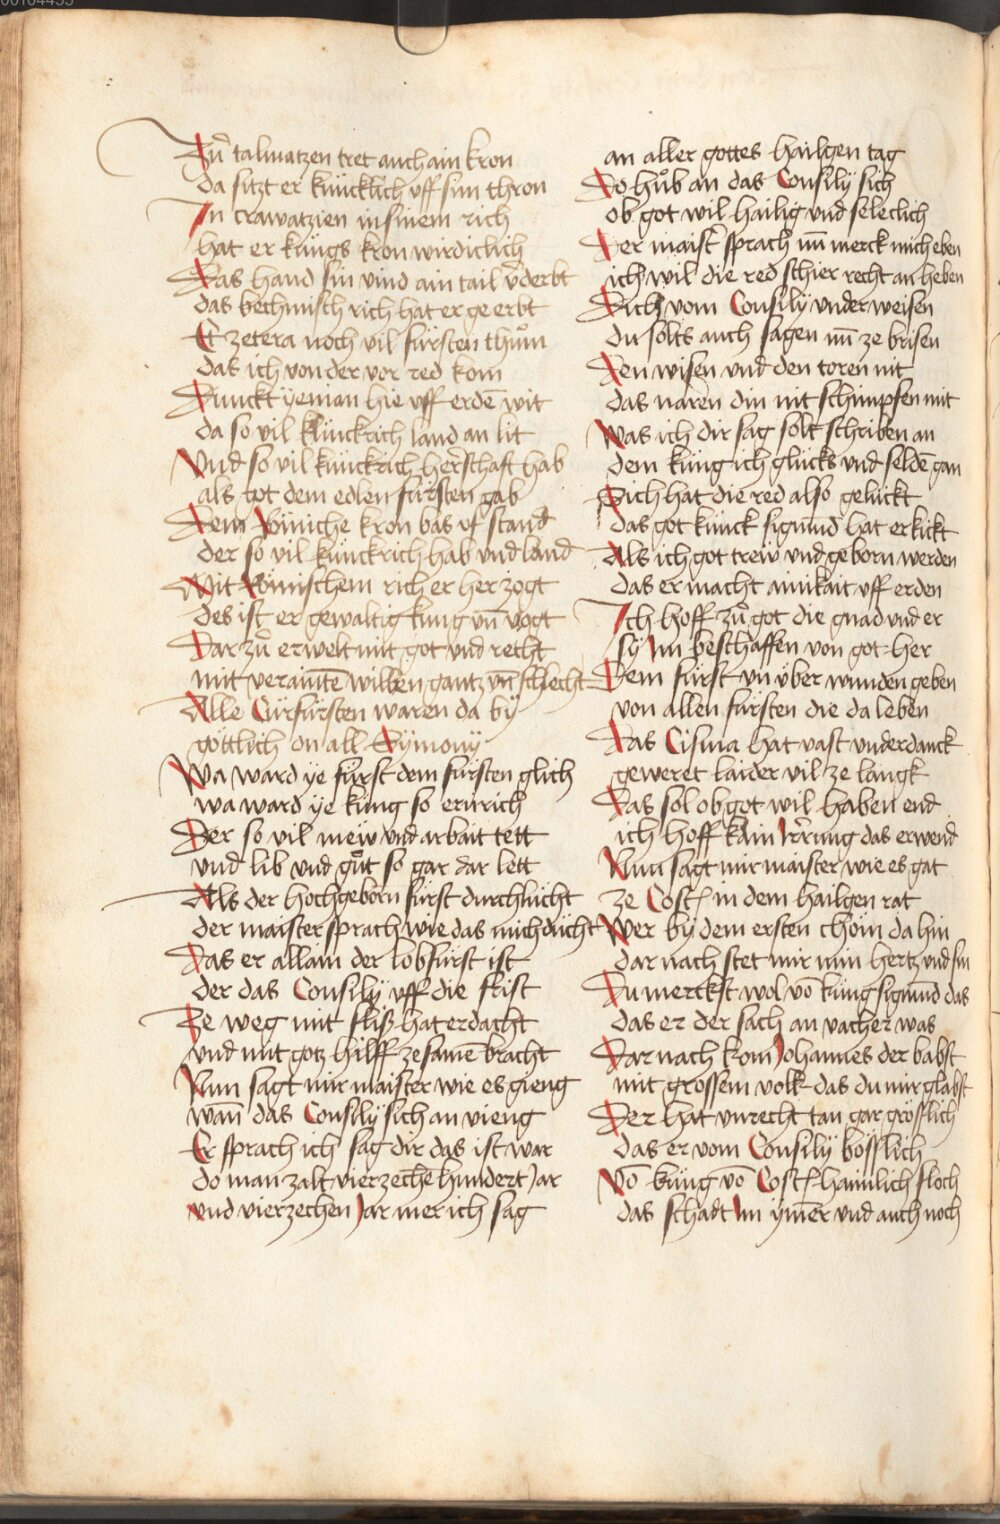 Zů talmatzen tret auch ain kron
da sitzt er künicklich vff sim thron
In crawatzien in sinem rich
hat er küngs kron wirdiclich
Das hand sin vind ain tail v̄derbt
das bechmisch rich hat er ge erbt
Et zetera noch vil fürsten thům
das ich von der vor red kom
Dunckt yeman hie vff erdē wit
da so vil künckrich land an lit
Vnd so vil künckrich herschaft hab
als got dem edlen fürsten gab
Dem Römiche kron bas vf stand
der so vil künckrich hab vnd land
Mit Römischem rich er her zogt
des ist er gewaltig kung vn̄ vogt
Dar zů erwelt mit got vnd recht
mit veraintē willen gantz vn̄ schlecht
Alle Curfürsten waren da by
göttlich on all Symony
Wa ward ye fürst dem fürsten glich
wa ward ye küng so erurich
Der so vil mew vnd arbait tett
vnd lib vnd gůt so gar dar lett
Als der hochgeborn fürst durchlücht
der maister sprach wie das mich dücht
Das er allain der lobfürst ist
der das Consily vff die frist
Ze weg mit fliß hat erdacht
vnd mit gotz hilff ze samē bracht
Nun sagt mir maister wie es gieng
wan̄ das Consily sich an vieng
Er sprach ich sag dir das ist war
do man zalt vierzechē hundert Jar
vnd vierzechen Jar mer ich sag
an aller gottes hailgen tag
Do hůb an das Consily sich
ob got wil hailig vnd seleclich
Der maist̄ sprach nu merck mich eben
ich wil die red schier recht an heben
Dich vom Consily vnder weisen
du solts auch sagen nu ze brisen
Den wisen vnd den toren nit
das naren din nit schimpfen mit
Was ich dir sag solt schriben an
dem küng ich glücks vnd seldē gan
Sich hat die red also gelückt
das got künck sigmund hat erkickt
Als ich got trew vnd geborn werden
das er macht ainikait vff erden
Ich hoff zů got die gnad vnd er
sy Im beschaffen von got her
Dem fürst vn über wunden geben
von allen fürsten die da leben
Das Cisma hat vast vnderdanck
geweret laider vil ze langk
Das sol ob got wil haben end
ich hoff kain Irrung das erwend
Nun sagt mir maister wie es gat
ze Cost in dem hailgen rat
Wer by dem ersten choin da hin
dar nach stet mir min hertz vnd sin
Du merckst wol vō küng sigmūd das
das er der sach an vacher was
Dar nach kom Johannes der babst
mit grossem volk das du mir glabst
Der hat vnrecht tan gar gröslich
das er vom Consily böslich
Vō küng vō Cost haimlich floch
das schadt Im ymer vnd auch noch